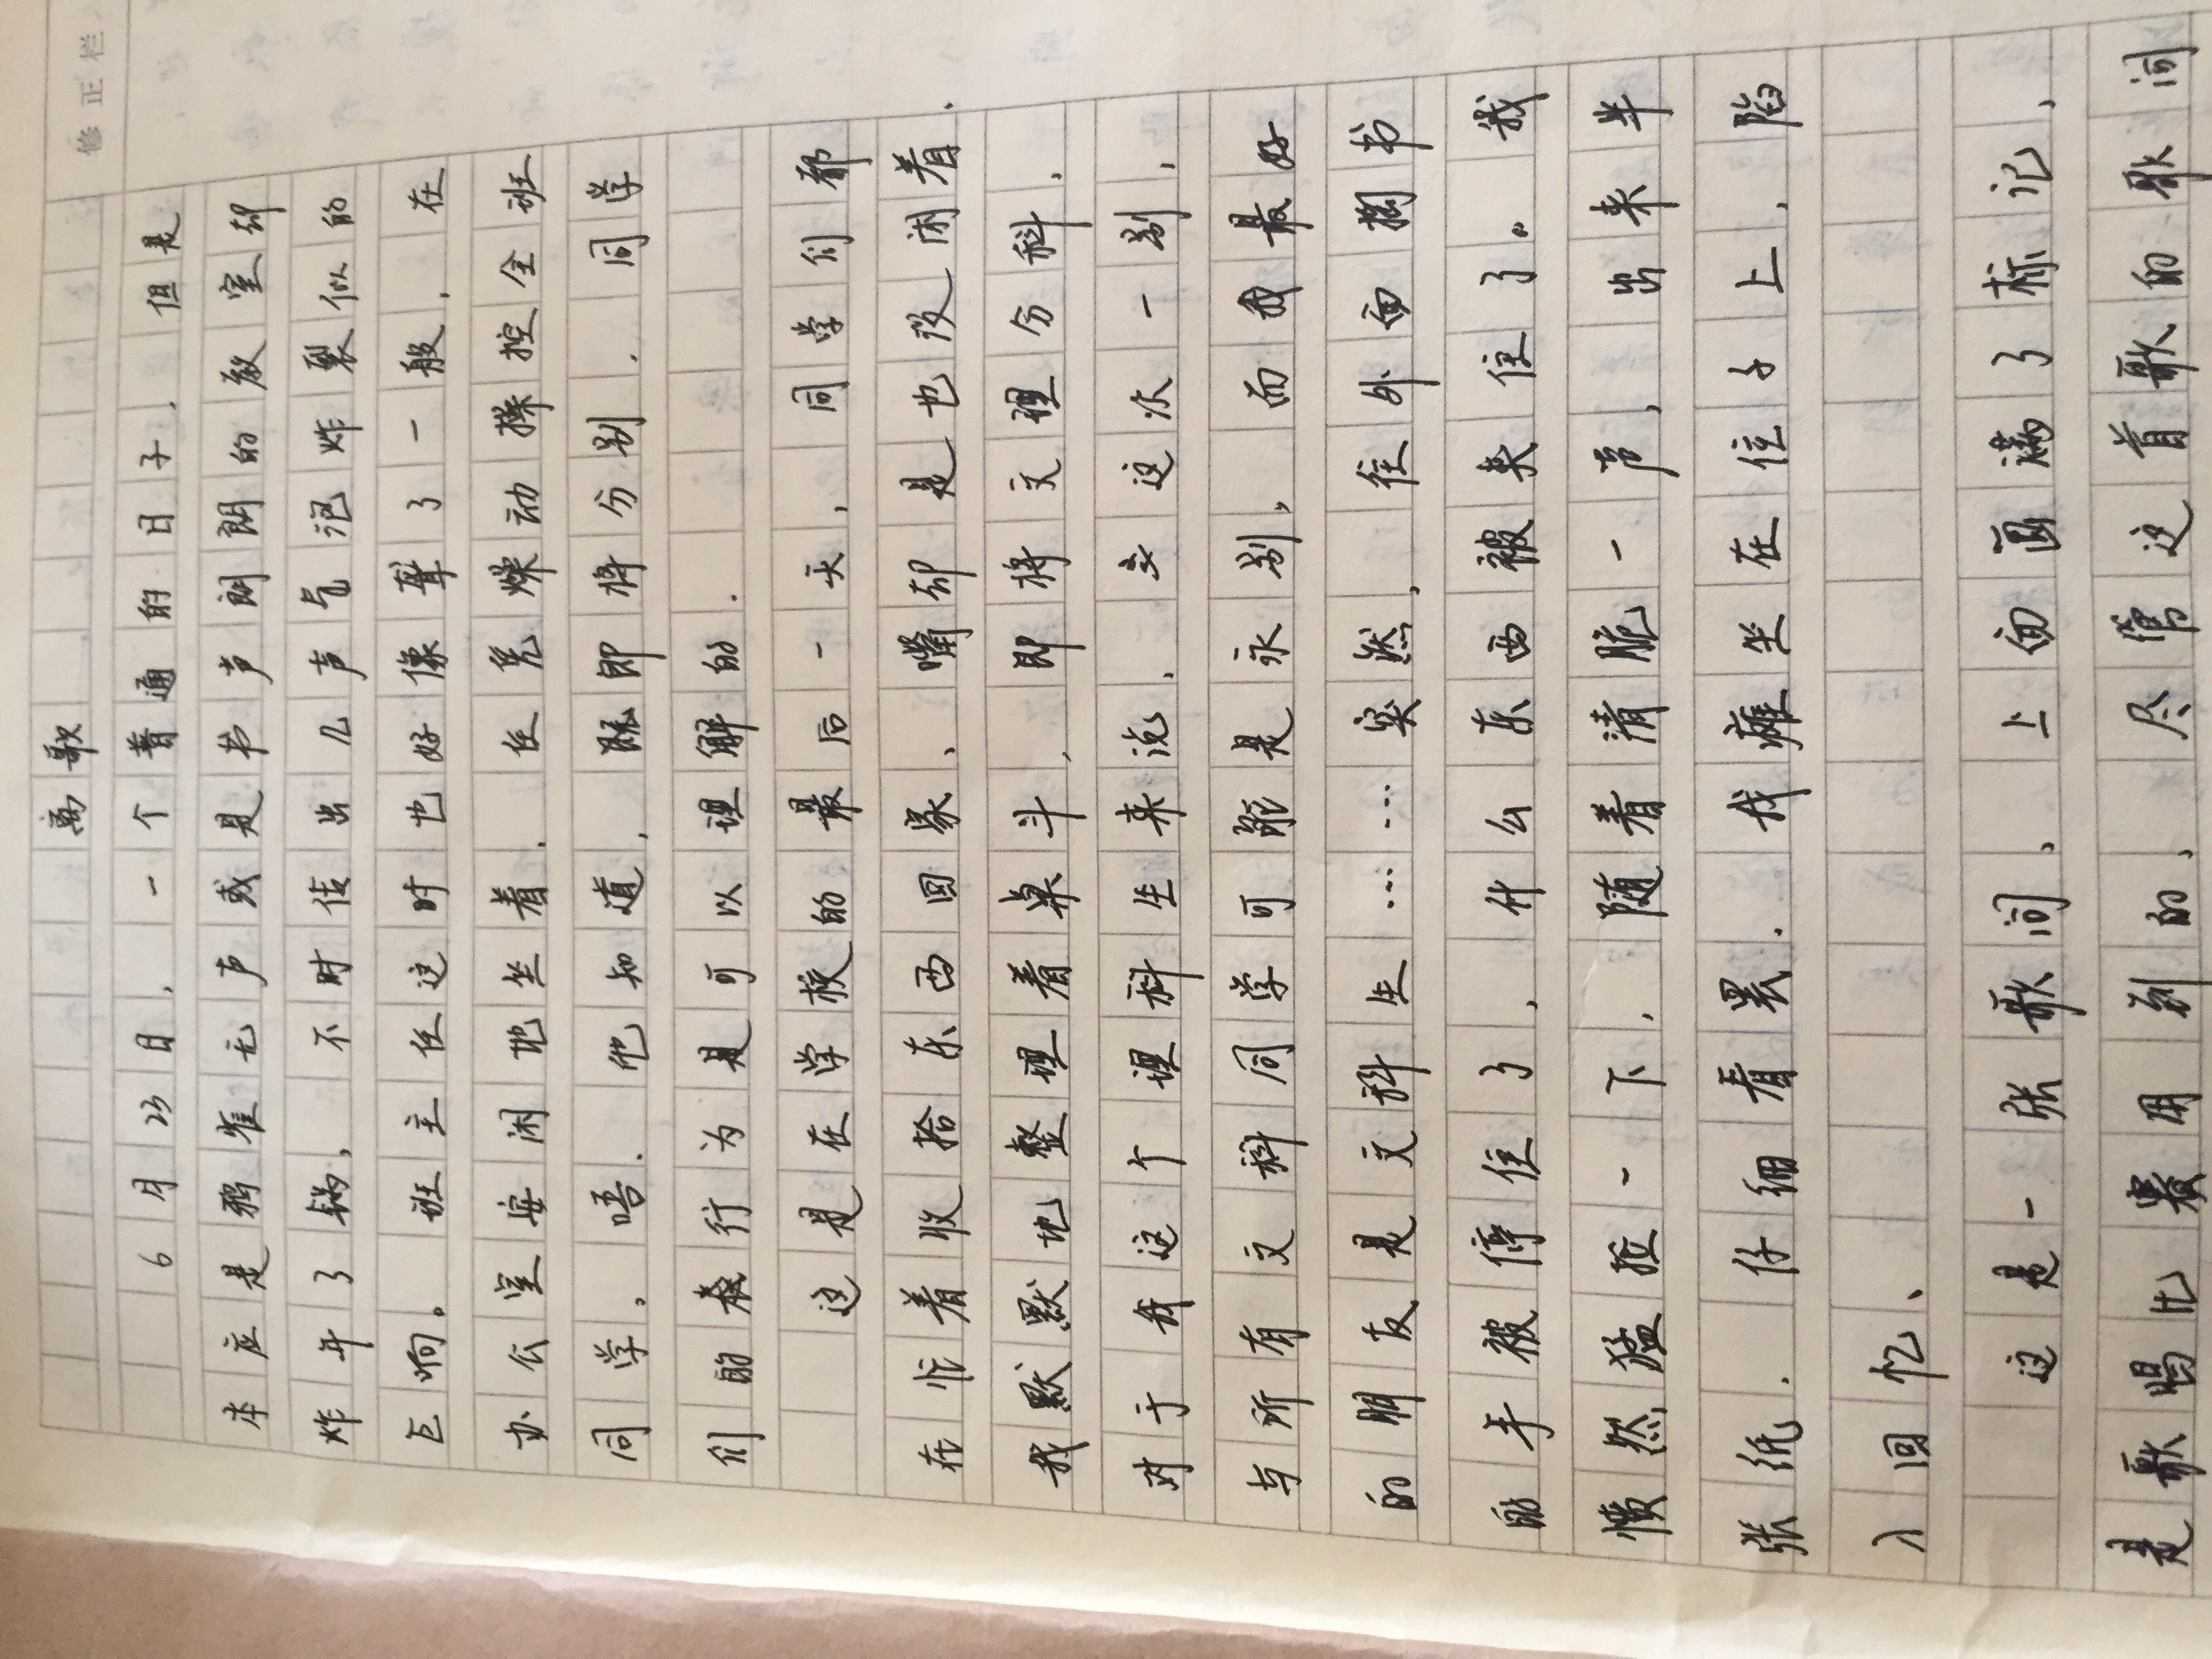 修正栏
离歌
6月23日,一个普通的日子.但是
本应是鸦雀无声或是书声朗朗的教室却
炸年了锅,不时传出几声气泡炸裂似的
巨响。班主任这时也好像聋了一般,在
办公室安闲地坐着.任凭燥动操控全班
同学。唔.他知道,即将分别.同学
们的行为是可以理解的.
这是在学校的最后一天,同学们都
在忙着收拾东西回家、嘴却是也没闲着.
我默默地整理着桌斗,即将文理分科,
对于我这个理科生来说,这次一别,
与所有文科同学可能是永别,而我最好
的朋友是文科生……突然,往外面搁书
的手被停住了,什么东西被夹住了。我
愤然猛拉一下,随着清脆一声,出来半
张纸.仔细看罢.我瘫坐在位子上,陷
入回忆、
这是一张歌词、上面画满了标记、
是歌唱比赛用到的、尽管这首歌的歌词